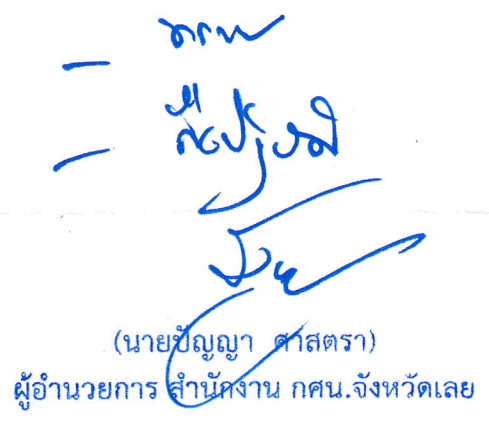 - ทราบ
- ถือปฏิบัติ
(นายปัญญา ศาสตรา)
ผู้อำนวยการ สำนักงาน กศน.จังหวัดเลย